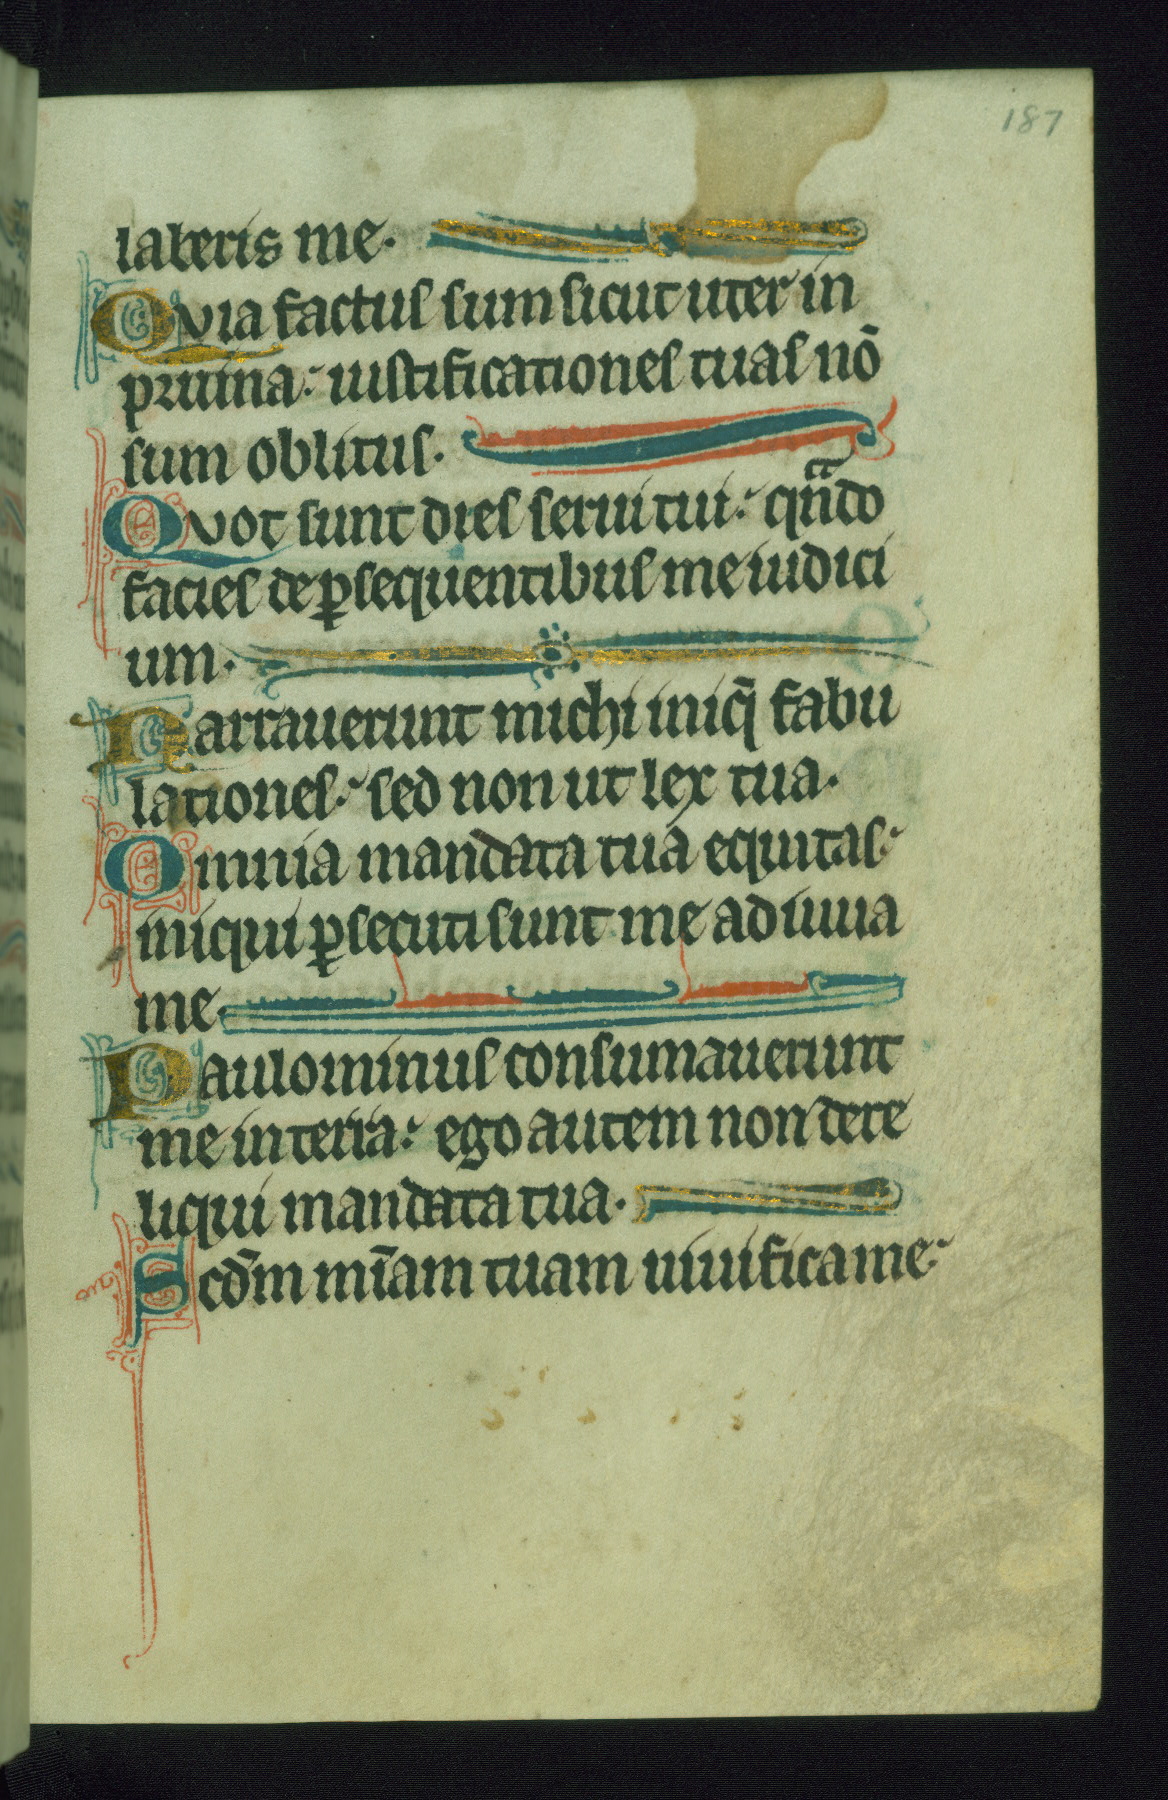 187
laberis me.
Quia factus sum sicut uter in
pruina: iustificationes tuas nō
sum oblitus.
Quot sunt dies serui tui: qñdo
facies de ꝑsequentibus me iudici
um.
Narrauerunt michi iniq̄ fabu
lationes: sed non ut lex tua.
Omnia mandata tua equitas:
iniqui ꝑsecuti sunt me adiuua
me.
Paulominus consumauerunt
me in terra: ego autem non dere
liqui mandata tua.
Scd̄m mīam tuam uiuifica me: